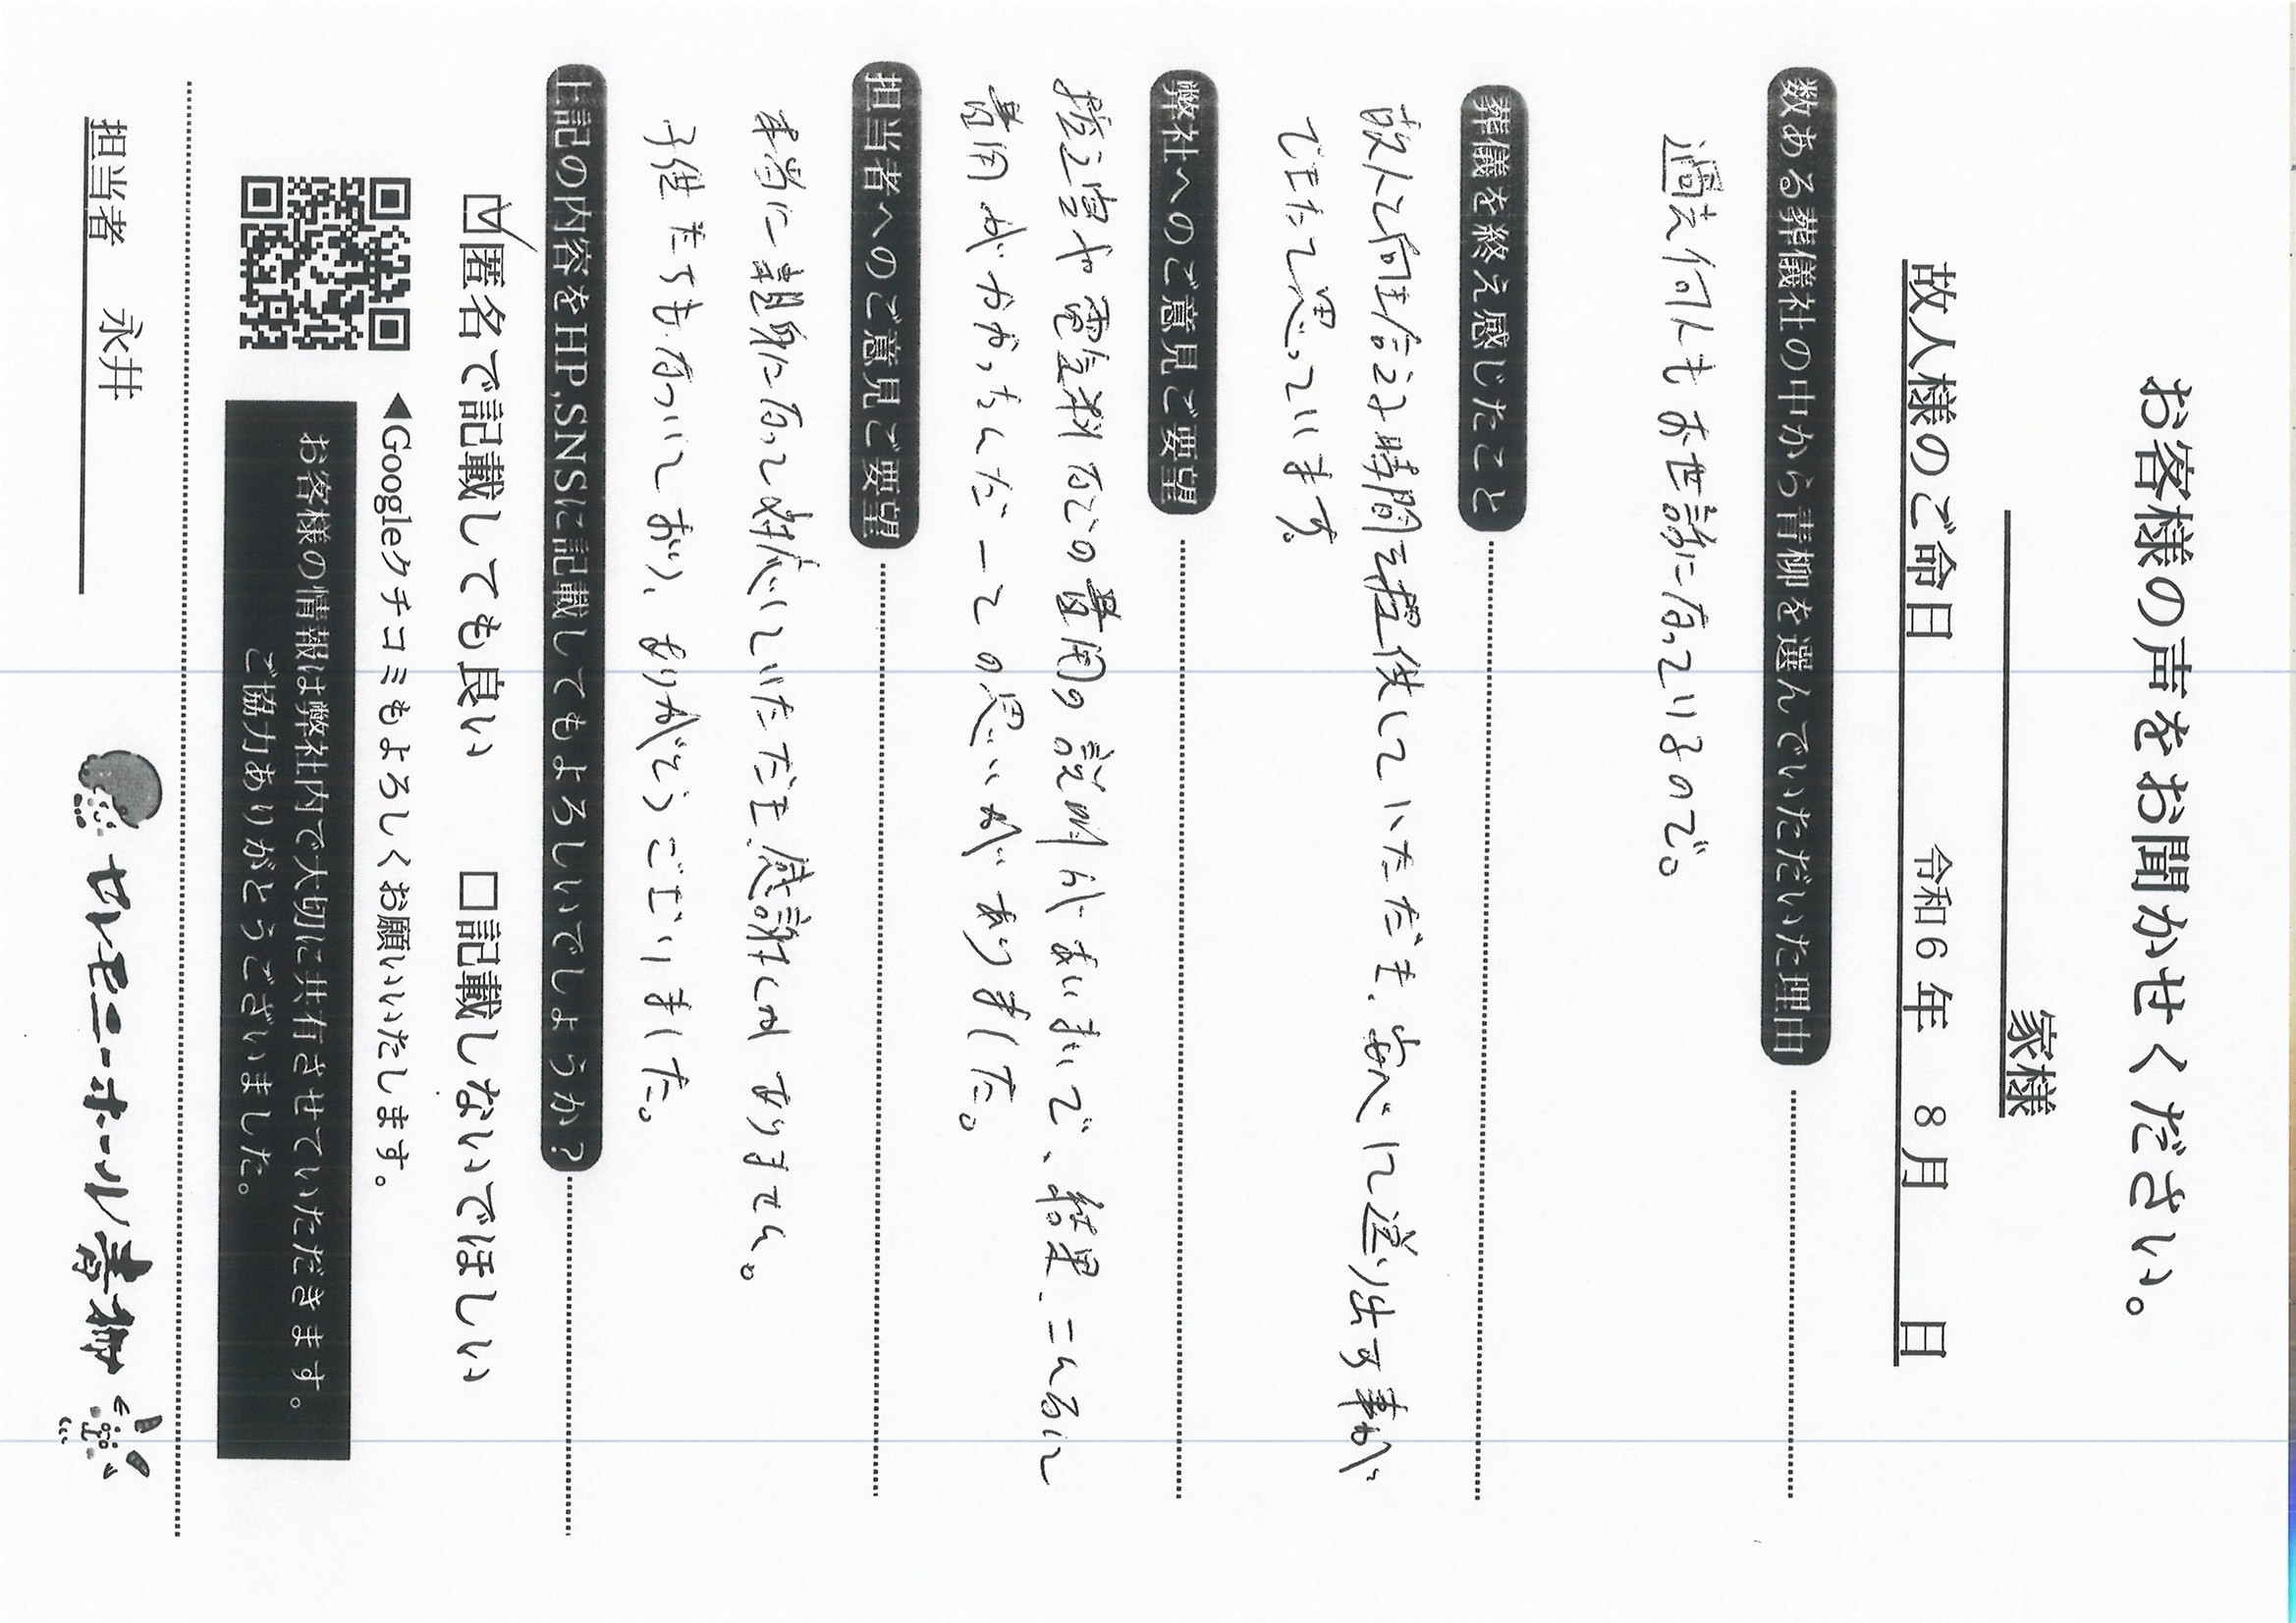 お客様の声をお聞かせください。
家様
故人様のご命日 令和6年 8月 日
数ある葬儀社の中から青柳を選んでいただいた理由
過去何人もお世話になっているので。
葬儀を終え感じたこと
故人と向き合える時間を提供していただき、安心して送り出す事が
できたと思っています。
弊社へのご意見ご要望
控え室や電気料などの費用の説明があいまいで、結果、こんなに
費用がかかったんだーとの思いがありました。
担当者へのご意見ご要望
本当に親身になって対応していただき、感謝しかありません。
子供たちもなついており、ありがとうございました。
上記の内容をHP,SNSに記載してもよろしいでしょうか?
☑匿名で記載しても良い □記載しないでほしい
◀Googleクチコミもよろしくお願いいたします。
お客様の情報は弊社内で大切に共有させていただきます。
ご協力ありがとうございました。
担当者 永井
セレモニーホール青柳